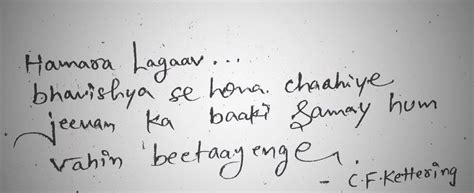 Hamara Lagaav...
bhavishya se hona chaahiye
jeevan ka baaki samay hum
vahin beetaayenge.
- C.F. Kettering